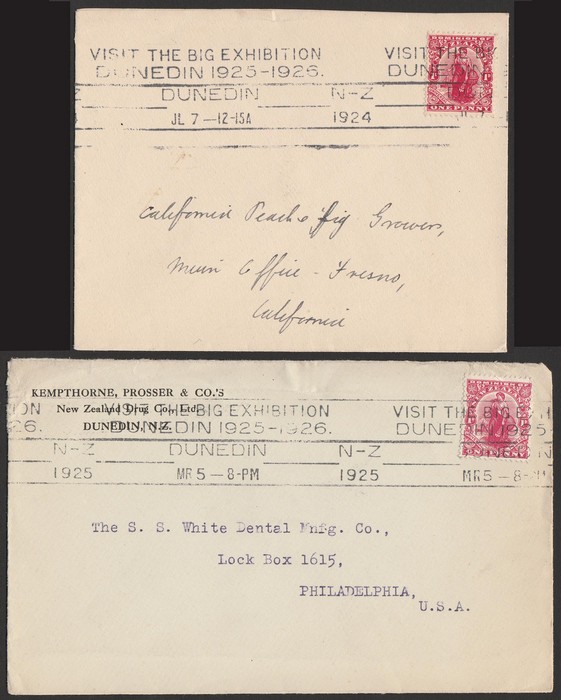 VISIT THE BIG EXHIBITION VISIT THE BIG
DUNEDIN 1925-1926. DUNEDIN
DUNEDIN N-Z
JL 7-12-15A 1924
DOMINION OF
ONE PENNY
California Peach & Fig Growers,
Main Office - Fresno,
California
KEMPTHORNE, PROSSER & CO.'S
New Zealand Drug Co., Ltd.
DUNEDIN, N.Z.
ON VISIT THE BIG EXHIBITION VISIT THE BIG EXH
26. DUNEDIN 1925-1926. DUNEDIN 1925
N-Z DUNEDIN N-Z N
1925 MR 5-8-PM 1925 MR 5-8-
DOMINION OF
ONE PENNY
The S. S. White Dental Mnfg. Co.,
Lock Box 1615,
PHILADELPHIA,
U.S.A.